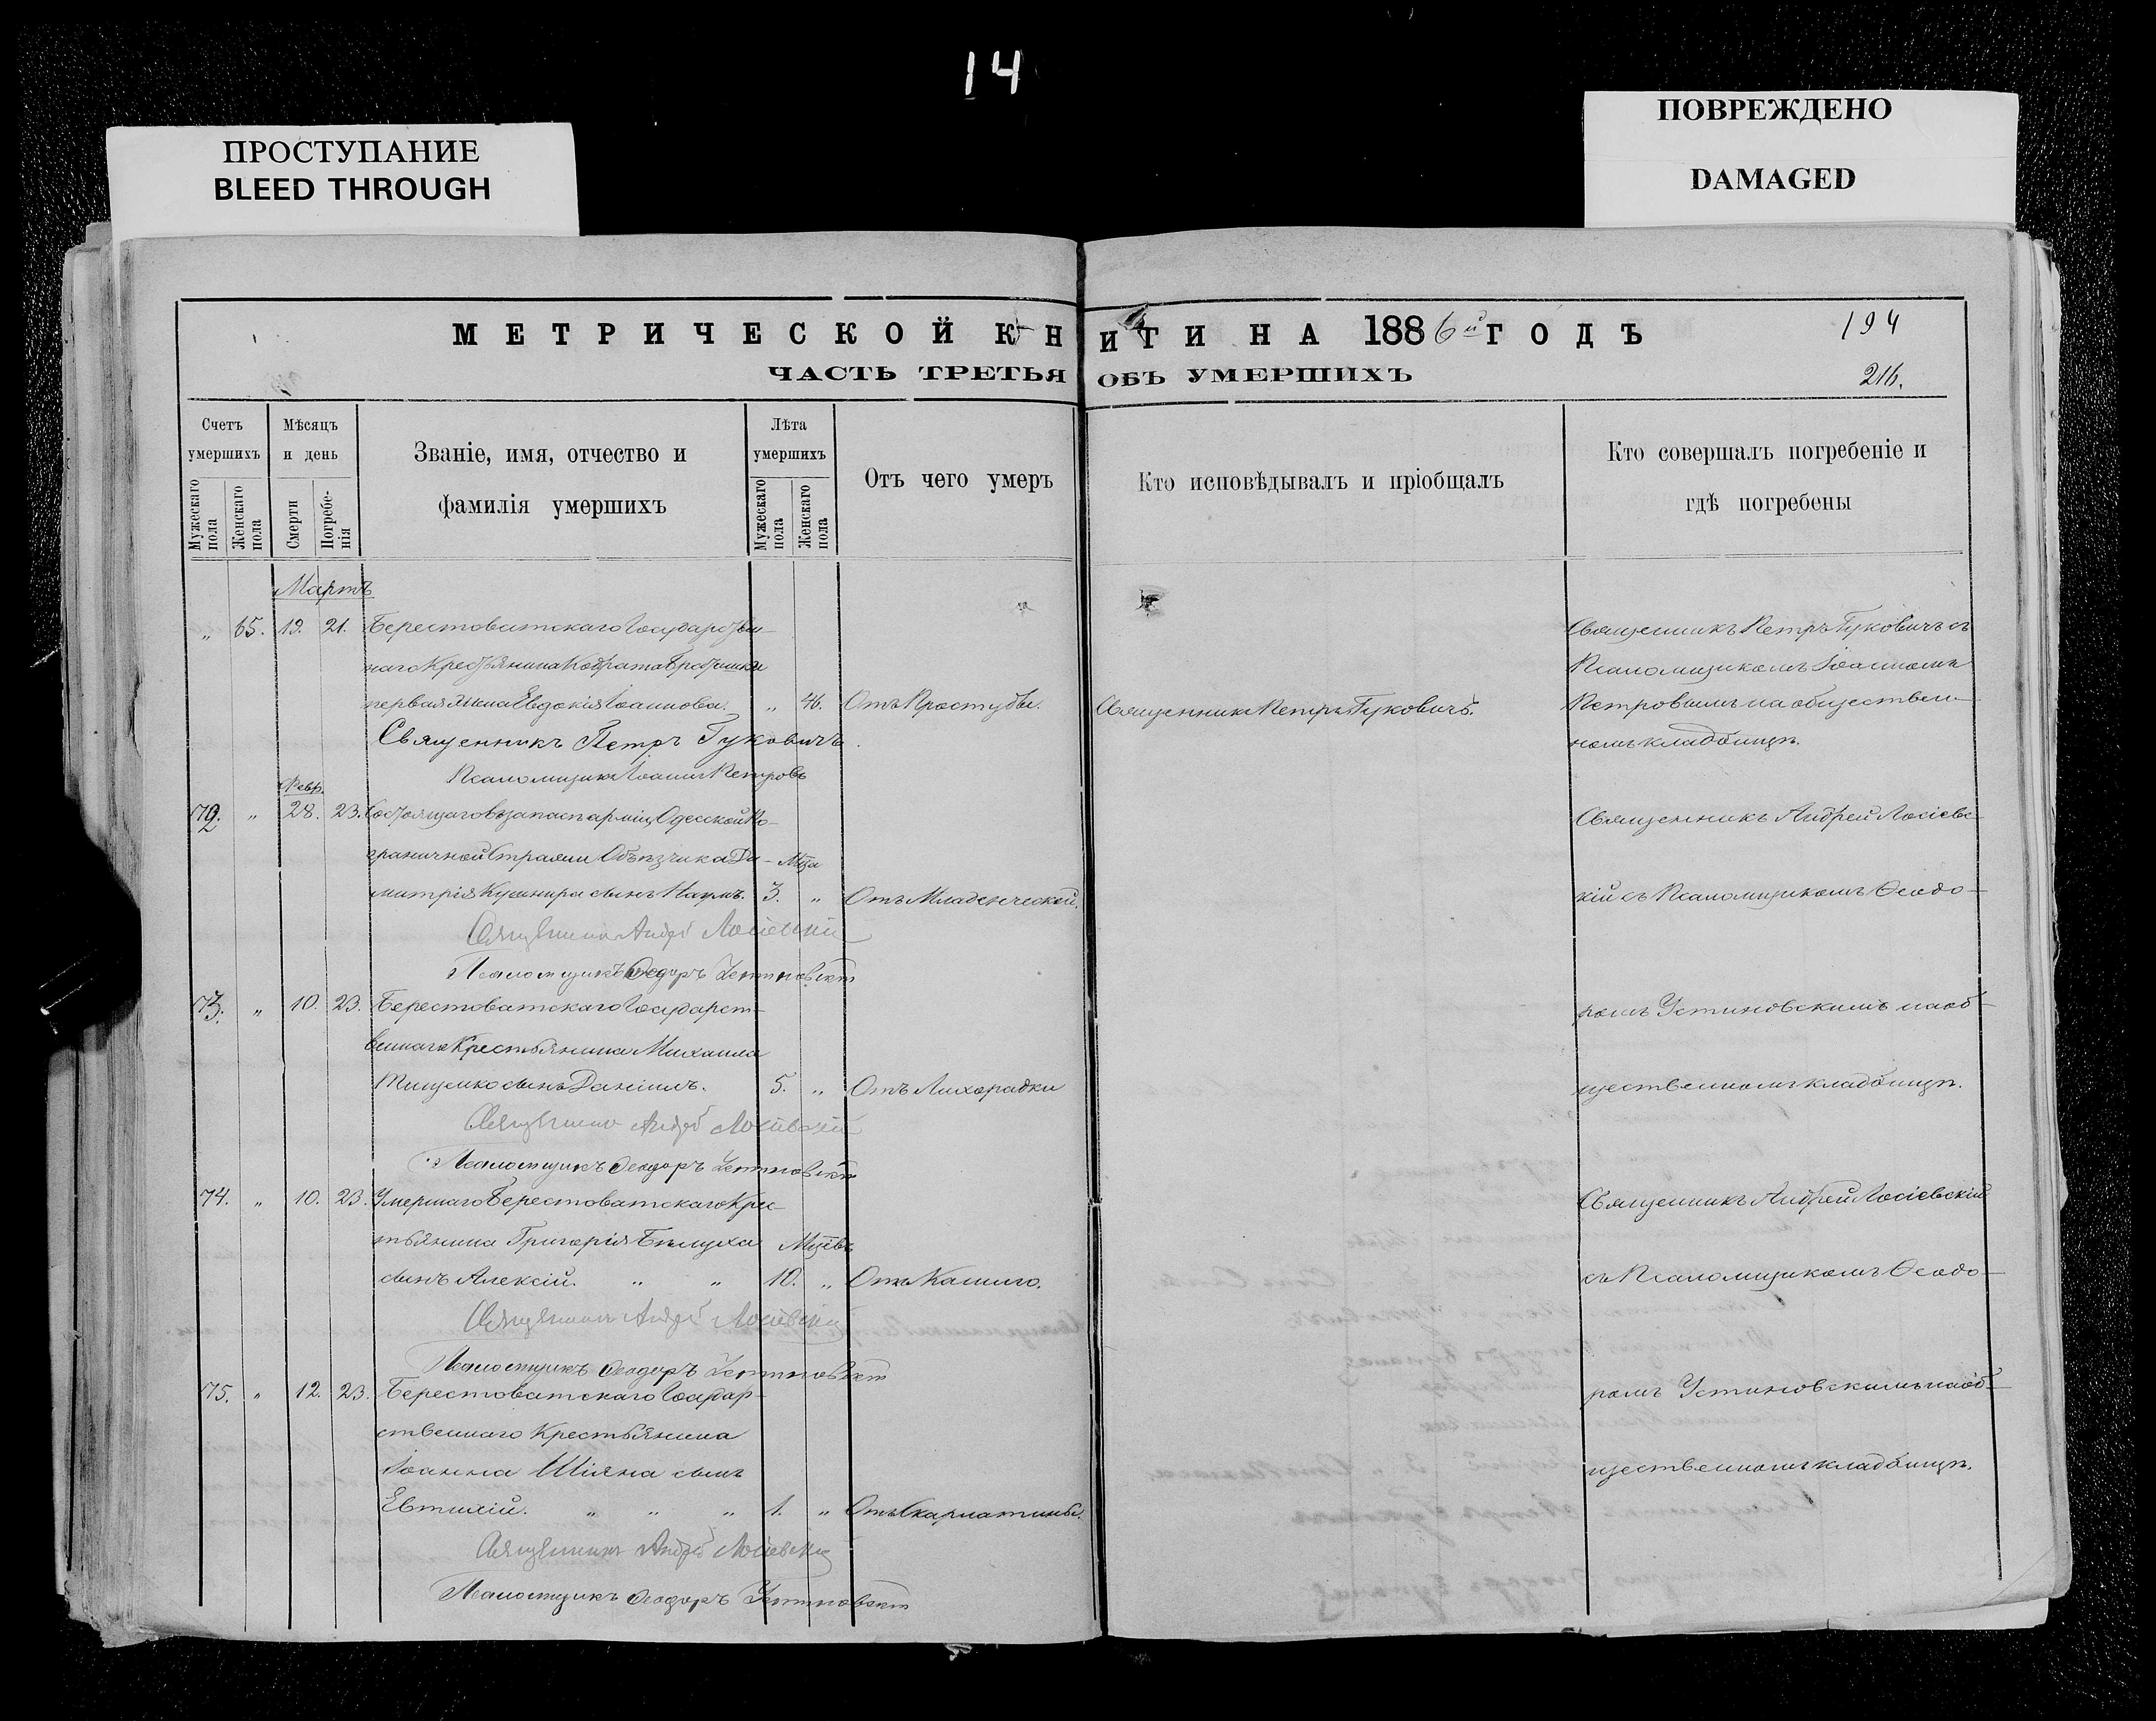 14
ПРОСТУПАНИЕ
BLEED THROUGH
ПОВРЕЖДЕНО
DAMAGED
МЕТРИЧЕСКОЙ КНИГИ НА 1886й ГОДЪ
194
ЧАСТЬ ТРЕТЬЯ ОБЪ УМЕРШИХЪ
216.
Счетъ умершихъ
Мужескаго пола
Женскаго пола
Мѣсяцъ и день
Смерти
Погребенія
Званіе, имя, отчество и
фамилія умершихъ
Лѣта умершихъ
Мужескаго пола
Женскаго пола
Отъ чего умеръ
Кто исповѣдывалъ и пріобщалъ
Кто совершалъ погребеніе и
гдѣ погребены
Мартъ
„ 65. 19. 21. Берестоватскаго Государствен-
наго Крестьянина
первая жена Евдокія Іоаннова. „ 46. Отъ Простуды. Священникъ Петръ Гуковичъ.
Священникъ Петръ Гуковичъ
Псаломщикъ Іоаннъ Петровъ
Священникъ Петръ Гуковичъ съ
Псаломщикомъ Іоанномъ
Петровымъ на обществен-
номъ кладбищѣ.
Февр.
72. „ 28. 23. Состоящаго въ запасѣ арміи, Одесской По-
граничной Стражи Объѣзчика Ди- Мца
митрія Кушнира сынъ Наумъ. 3. „ Отъ Младенческой.
Священникъ Андрей Лосіевскій
Псаломщикъ Ѳеодоръ Устиновскій
73. „ 10. 23. Берестоватскаго Государст-
веннаго Крестьянина Михаила
Тищенко сынъ Даніилъ. 5. „ Отъ Лихорадки
Священникъ Андрей Лосіевскій
Псаломщикъ Ѳеодоръ Устиновскій
Священникъ Андрей Лосіевс-
кій съ Псаломщикомъ Ѳеодо-
ромъ Устиновскимъ на об-
щественномъ кладбищѣ.
74. „ 10. 23. Умершаго Берестоватскаго Крес-
тьянина Григорія Бѣлуха Мцевъ
сынъ Алексій. „ „ 10. „ Отъ Кашлю.
Священникъ Андрей Лосіевскій
Псаломщикъ Ѳеодоръ Устиновскій
75. „ 12. 23. Берестоватскаго Государ-
ственнаго Крестьянина
Іоанна Шіяна сынъ
Евтихій. „ „ „ 1. „ Отъ Скарлатины.
Священникъ Андрей Лосіевскій
Псаломщикъ Ѳеодоръ Устиновскій
Священникъ Андрей Лосіевскій
съ Псаломщикомъ Ѳеодо-
ромъ Устиновскимъ на об-
щественномъ кладбищѣ.